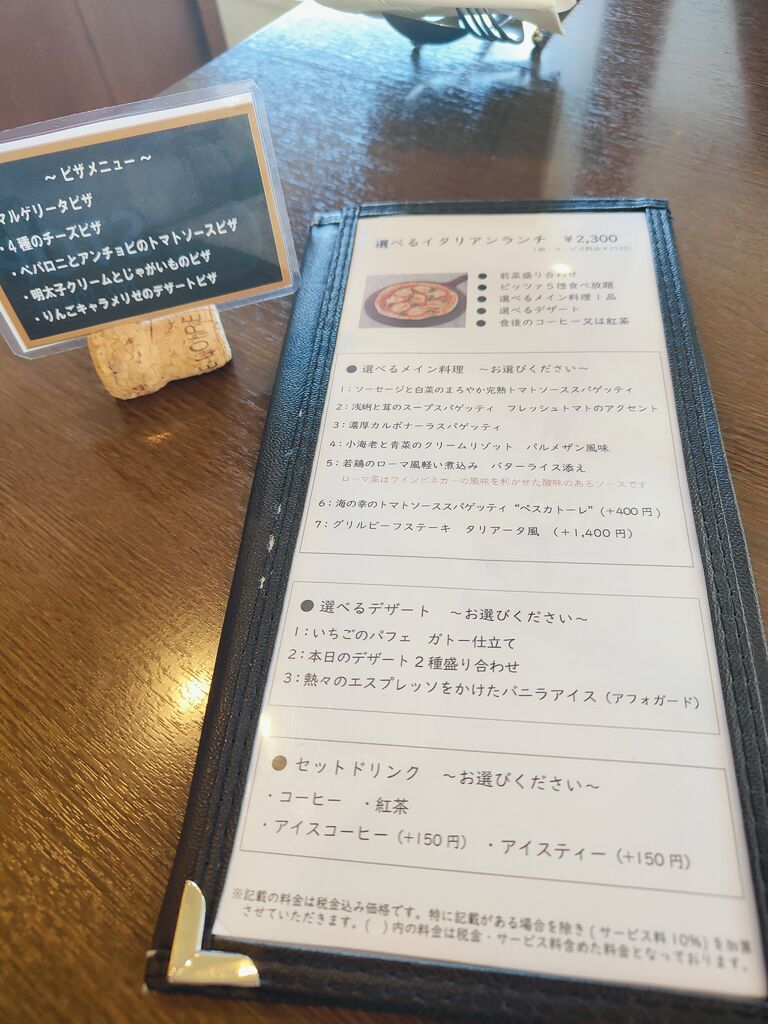 ～ピザメニュー～
マルゲリータピザ
・4種のチーズピザ
・ペパロニとアンチョビのトマトソースピザ
・明太子クリームとじゃがいものピザ
・りんごキャラメリゼのデザートピザ
選べるイタリアンランチ ￥2,300
(税・サービス料込￥2530)
● 前菜盛り合わせ
● ピッツァ5種食べ放題
● 選べるメイン料理1品
● 選べるデザート
● 食後のコーヒー又は紅茶
● 選べるメイン料理 ～お選びください～
1：ソーセージと白菜のまろやか完熟トマトソーススパゲッティ
2：浅蜊と茸のスープスパゲッティ フレッシュトマトのアクセント
3：濃厚カルボナーラスパゲッティ
4：小海老と青菜のクリームリゾット パルメザン風味
5：若鶏のローマ風軽い煮込み バターライス添え
ローマ風はワインビネガーの風味を利かせた酸味のあるソースです
6：海の幸のトマトソーススパゲッティ “ペスカトーレ” (+400円)
7：グリルビーフステーキ タリアータ風 (+1,400円)
● 選べるデザート ～お選びください～
1：いちごのパフェ ガトー仕立て
2：本日のデザート2種盛り合わせ
3：熱々のエスプレッソをかけたバニラアイス (アフォガード)
● セットドリンク ～お選びください～
・コーヒー ・紅茶
・アイスコーヒー (+150円) ・アイスティー (+150円)
※記載の料金は税金込み価格です。特に記載がある場合を除き (サービス料10%) を加算
させていただきます。( ) 内の料金は税金・サービス料含めた料金となっております。